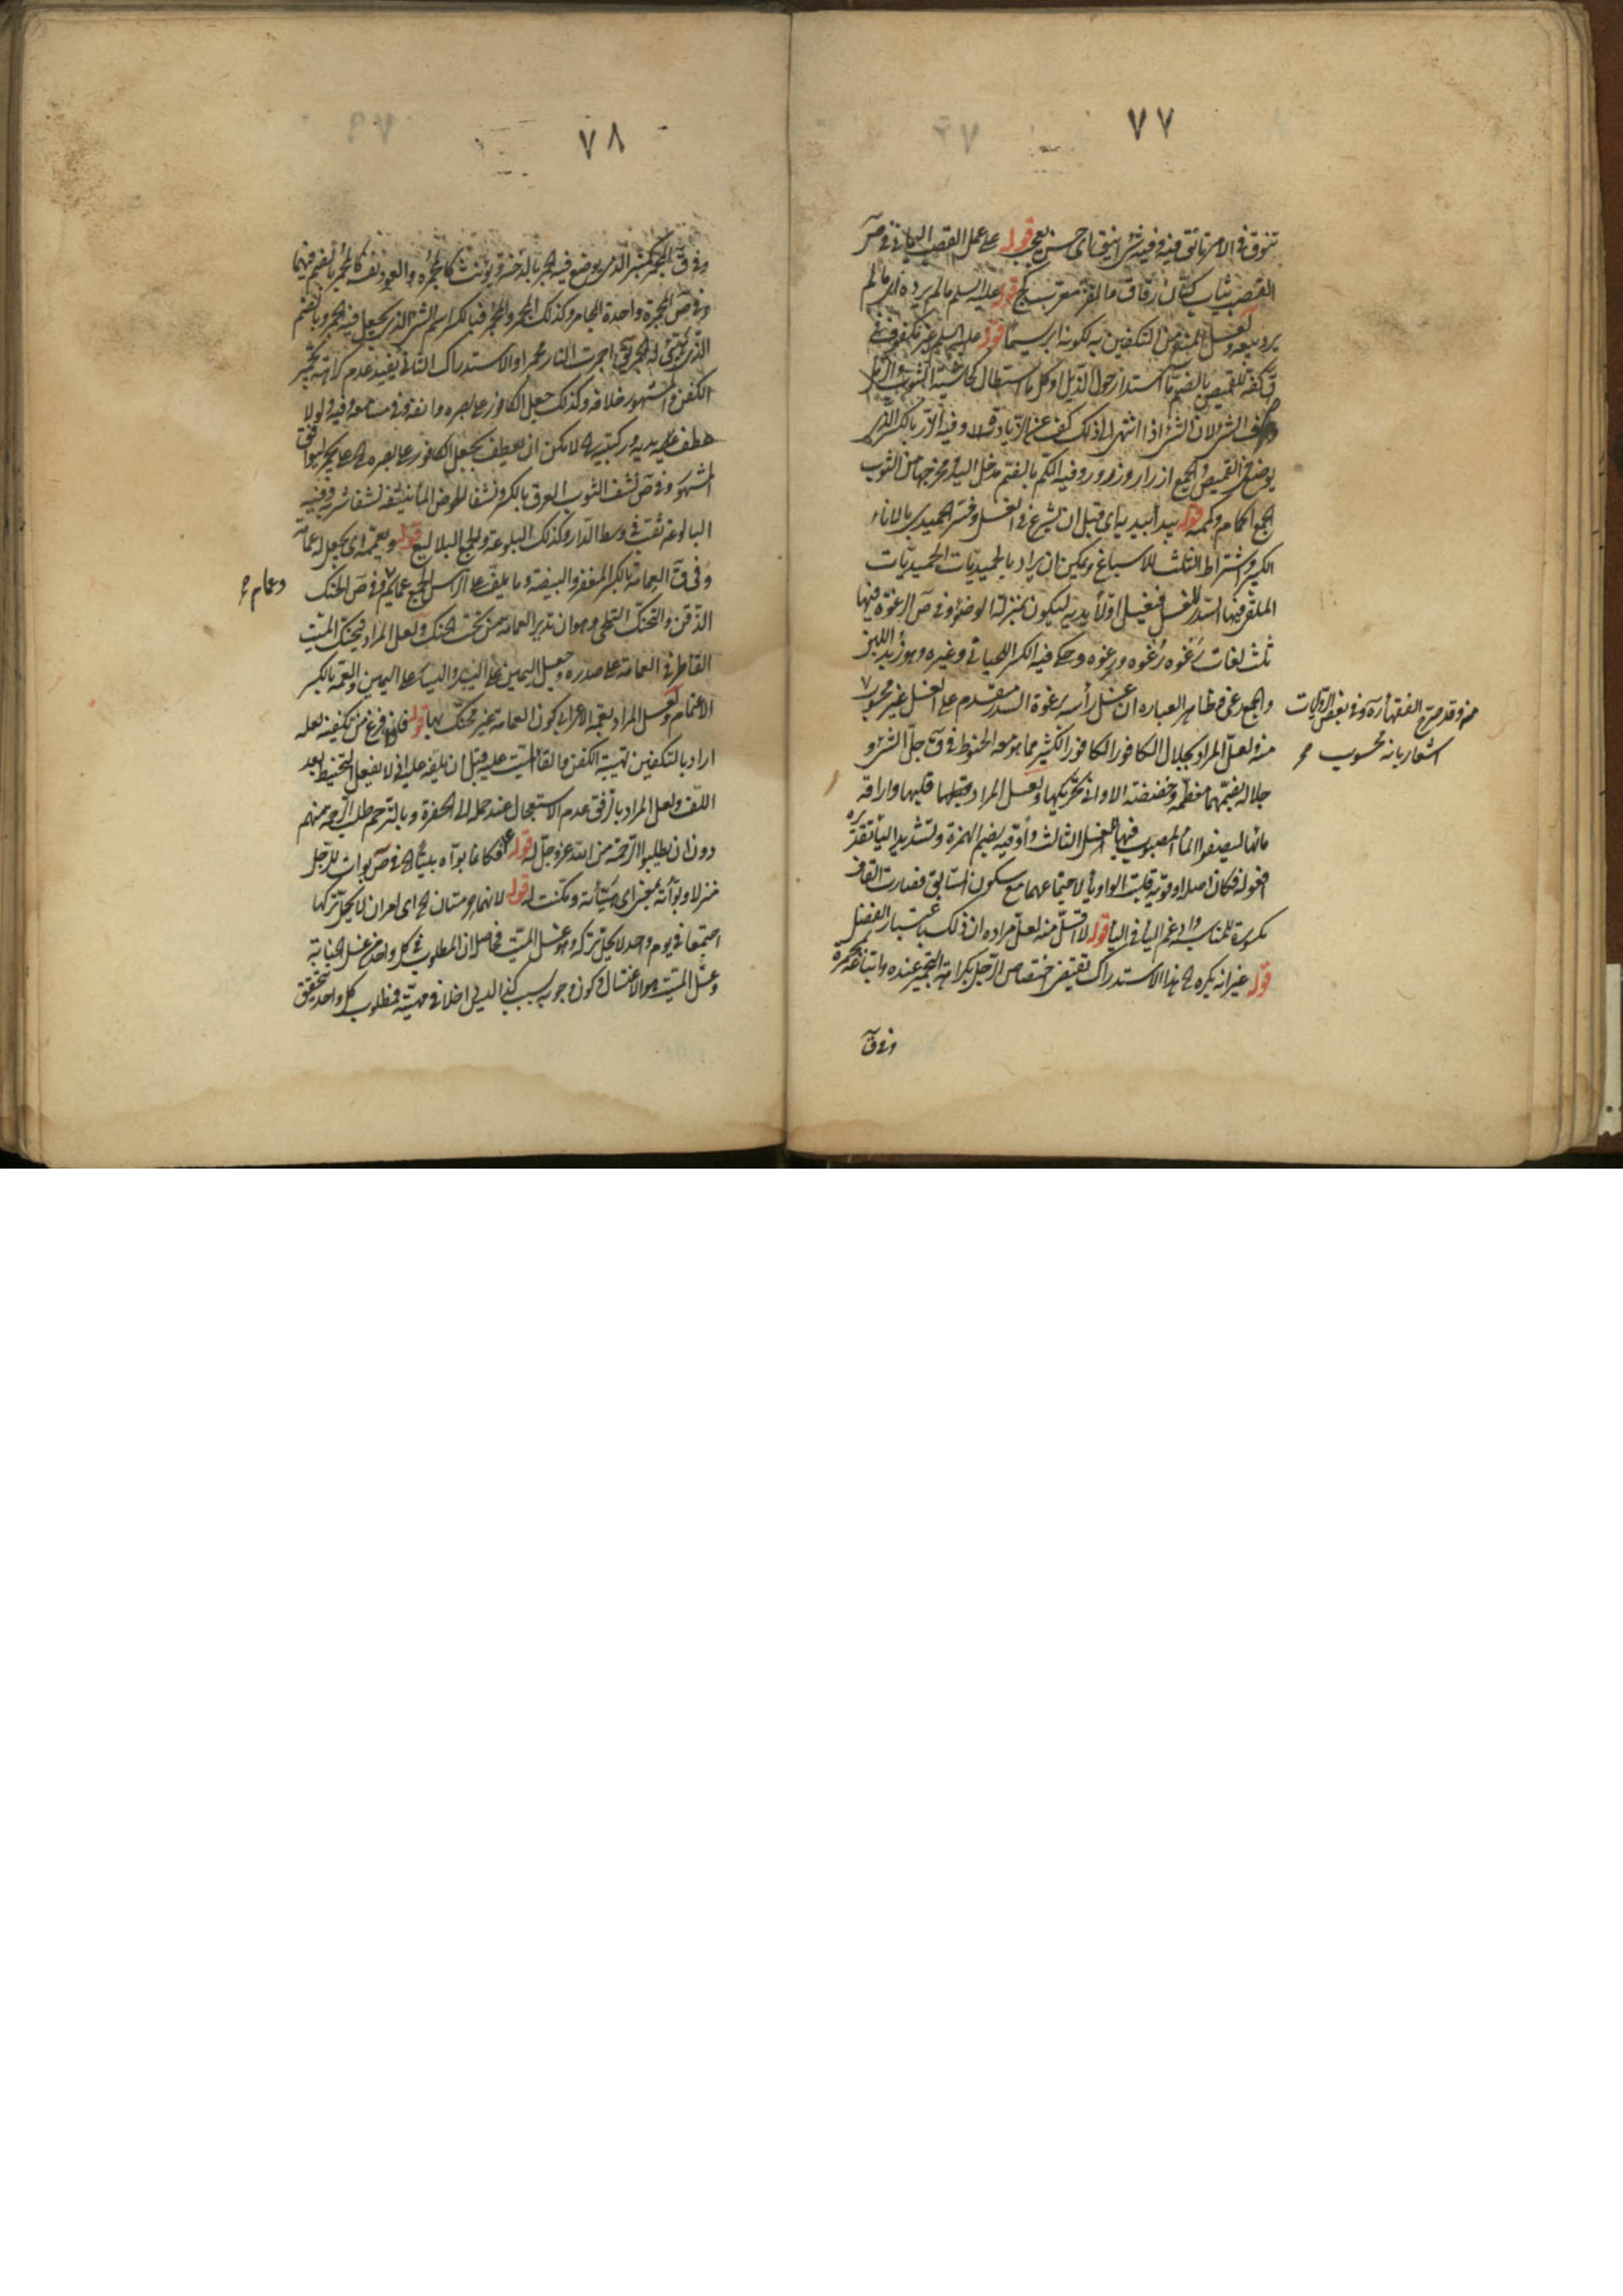 ٧٧
تنوق فى الامر تانق فيه وفيه شئ انيق اى حسن معجب قوله على عمل القصب اليمانى فى ص
القصب ثياب كتان رقاق والقز معرب كج قوله عليه السلم مالم يرده اى مالم
يرد بيعه ولعل المنع من التكفين به لكونه ابريسما قوله عليه السلم غير مكفوف فى
ق كفة القميص بالضم ما استدار حول الذيل او كل ما استطال كحاشية الثوب والرمل
الشئ لان الشئ اذا انتهى الى ذلك كف عن الزيادة وفيه الزر بالكسر الذى
يوضع فى القميص والجمع ازرار وزرور وفيه الكم بالضم مدخل اليد ومخرجها من الثوب
الجمع اكمام وكممه قوله يبدأ بيديه اى قبل ان يشرع فى الغسل وفسر الحميدى بالاناء
الكبير واشتراط الثلث للاسباغ ويمكن ان يراد بالحميديات الحميديات
الملقى فيها السدر للغسل فيغسل اولا يديه ليكون بمنزلة الوضوء وفى ص الرغوة فيها
ثلث لغات رغوه رغوه ورغوه وحكى فيه الكسر اللحيانى وغيره وهو زبد اللبن
والجمع رغى وظاهر العباره ان غسل رأسه برغوة السدر مقدم على الغسل غير محسوب
منه وقد صرح الفقهاء ره وفى بعض الروايات
اشعار بانه محسوب
منه ولعل المراد بجلال الكافور الكافور الكثير مما يوضع الحنوط فى ق جل الشئ و
جلاله بضمهما معظمه وخضخضة الاوانى تحريكها ولعل المراد قلبها واراقة
مائها ليصفوا الماء المصبوب فيها للغسل الثالث وأوقيه بضم الهمزة وتشديد الياء تقديره
افعوله فكان اصله اوقويه قلبت الواو ياء لاجتماعهما مع سكون السابق فصارت القاف
مكسورة للمناسبه وادغم الياء فى الياء قوله لا اقل منه لعل مراده ان ذلك باعتبار الفضل
قوله غير انه يكره هذا الاستدراك يقتضى اختصاص الرجل بكراهة التجمير عنده واتباعه بمجمرة
وفى ق
٧٨
وفى ق المجمر كمنبر الذى يوضع فيه الجمر بالدخنة ويؤنث كالمجمره والعود نفسه كالمجمر بالضم فيهما
وفى ص المجمرة واحدة المجامر وكذلك المجمر والمجمر فبالكسر اسم الشئ الذى يجعل فيه الجمر وبالضم
الذى هيئ له الجمر يقال اجمرت النار مجمرا والاستدراك الثانى يفيد عدم كراهة تجمير
الكفن والمشهور خلافه وكذلك جعل الكافور على بصره وانفه وفى مسامعه وفيه ولولا
عطف يديه وركبتيه لامكن ان يعطف بجعل الكافور على بصره على يكره ليوافق
المشهور وفى ص نشف الثوب العرق بالكسر ونشف الحوض الماء ينشفه نشفا شربه وفيه
البالوعة ثقب فى وسط الدار وكذلك البلوعة والجمع البلاليع قوله ويعممه اى يجعل له عمامة
وفى ق العمامة بالكسر المغفر والبيضة وما يلف على الرأس الجمع عمايم وفى ص الحنك
وعمام
الذقن والتحنك التلحى وهو ان تدير العمامة من تحت الحنك ولعل المراد فيحنك الميت
القاء طرفى العمامة على صدره وجعل اليمين على اليسار واليسار على اليمين والعمة بالكسر
الاعتمام ولعل المراد بعمة الاعرابى كون العمامة غير محنك بها قوله فاذا فرغ من تكفينه لعله
اراد بالتكفين تهيئة الكفن والقاء الميت عليه قبل ان يلفه عليه اذ لا يفعل التحنيط بعد
اللف ولعل المراد بالرفق عدم الاستعجال عند حمله الى الحفرة وبالترحم طلب الرحمة منهم
دون ان يطلبوا الرحمة من الله عز وجل له قوله فكانما بوأه بيتا فى ص بوات للرجل
منزلا وبوأته بمعنى اى هيئأته ومكنت له قوله لانهما حرمتان اى امران لا يحل تركها
اجتمعا فى يوم واحد لا يحل تركه وهو غسل الميت فحاصله ان المطلوب فى كل واحد من غسل الجنابة
وغسل الميت هو الاغتسال وكون وجوبه بسبب كذا ليس داخلا فى مهيته فمطلوب كل واحد يتحقق